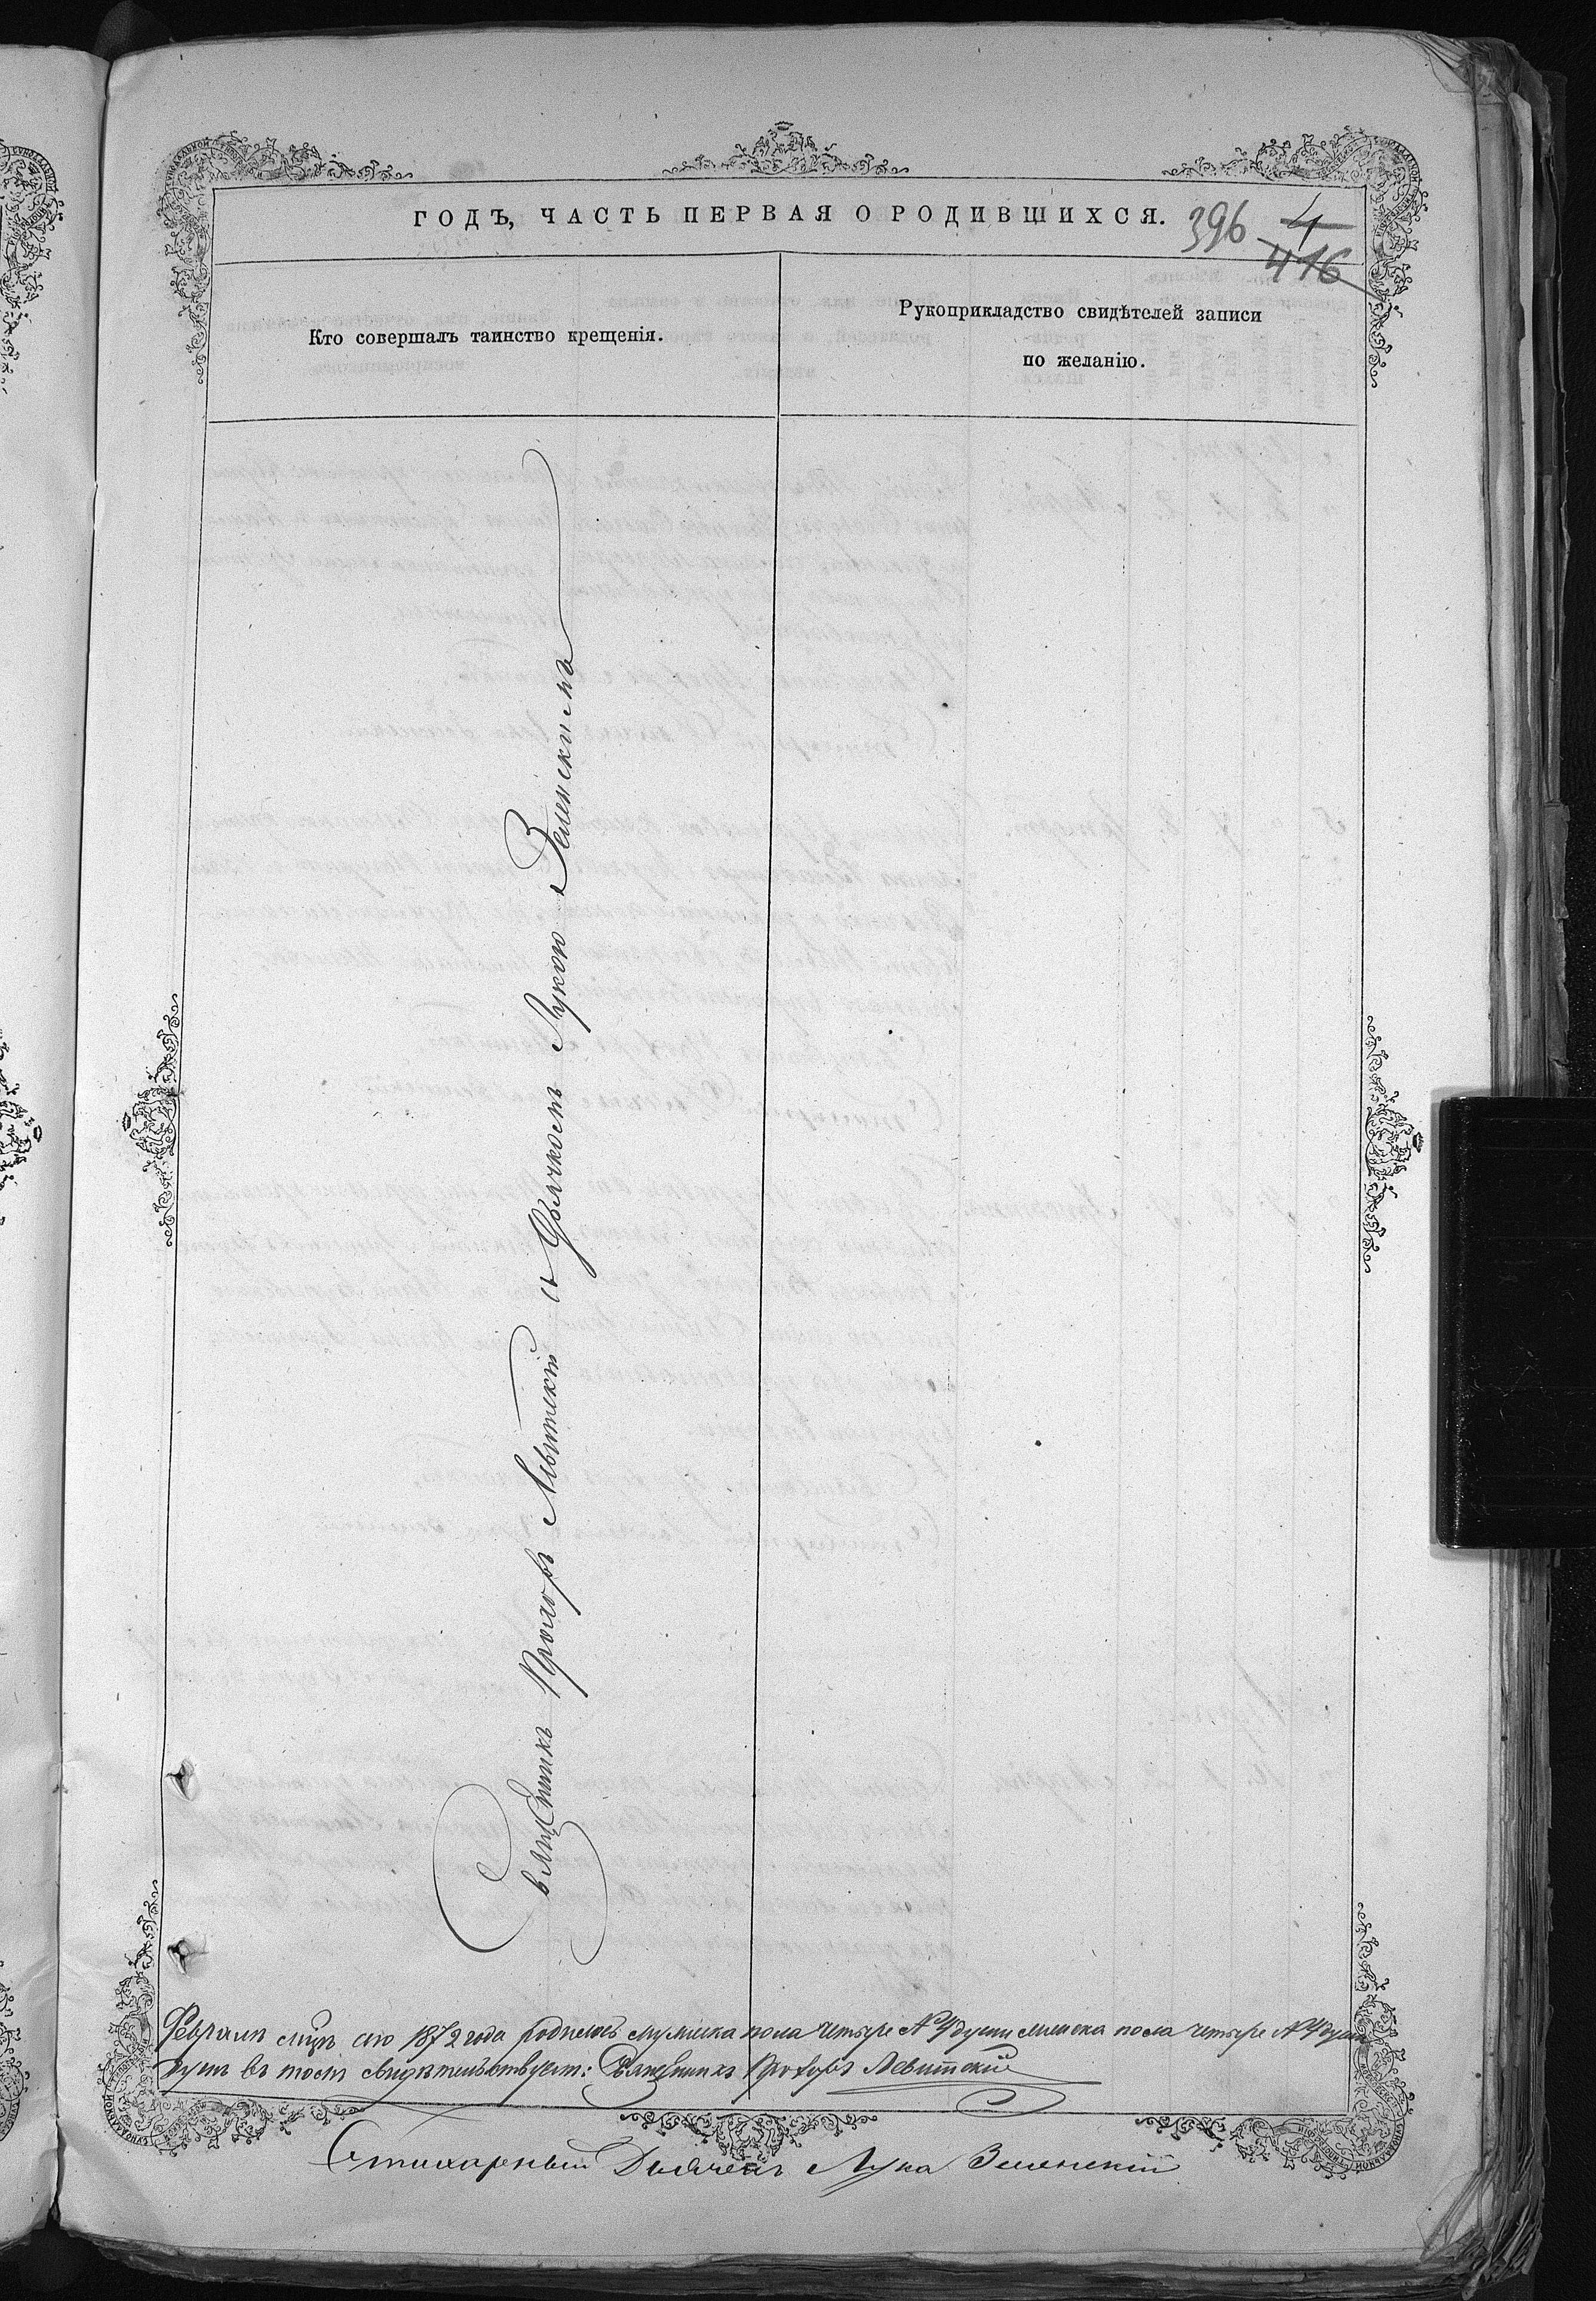 ГОДЪ, ЧАСТЬ ПЕРВАЯ О РОДИВШИХСЯ.
396 4
416
Кто совершалъ таинство крещенія.
Рукоприкладство свидѣтелей записи
по желанію.
Священникъ Прохоръ Лѣвитскій съ Дьячкомъ Лукою Зеленскимъ
Февраля мцѣ сего 1872 года родилось мужеска пола четыре № 4 души женска пола четыре № 4 души
въ томъ свидѣтельствуетъ: Священникъ Прохоръ Левитскій
Стихарный Дьячекъ Лука Зеленскій